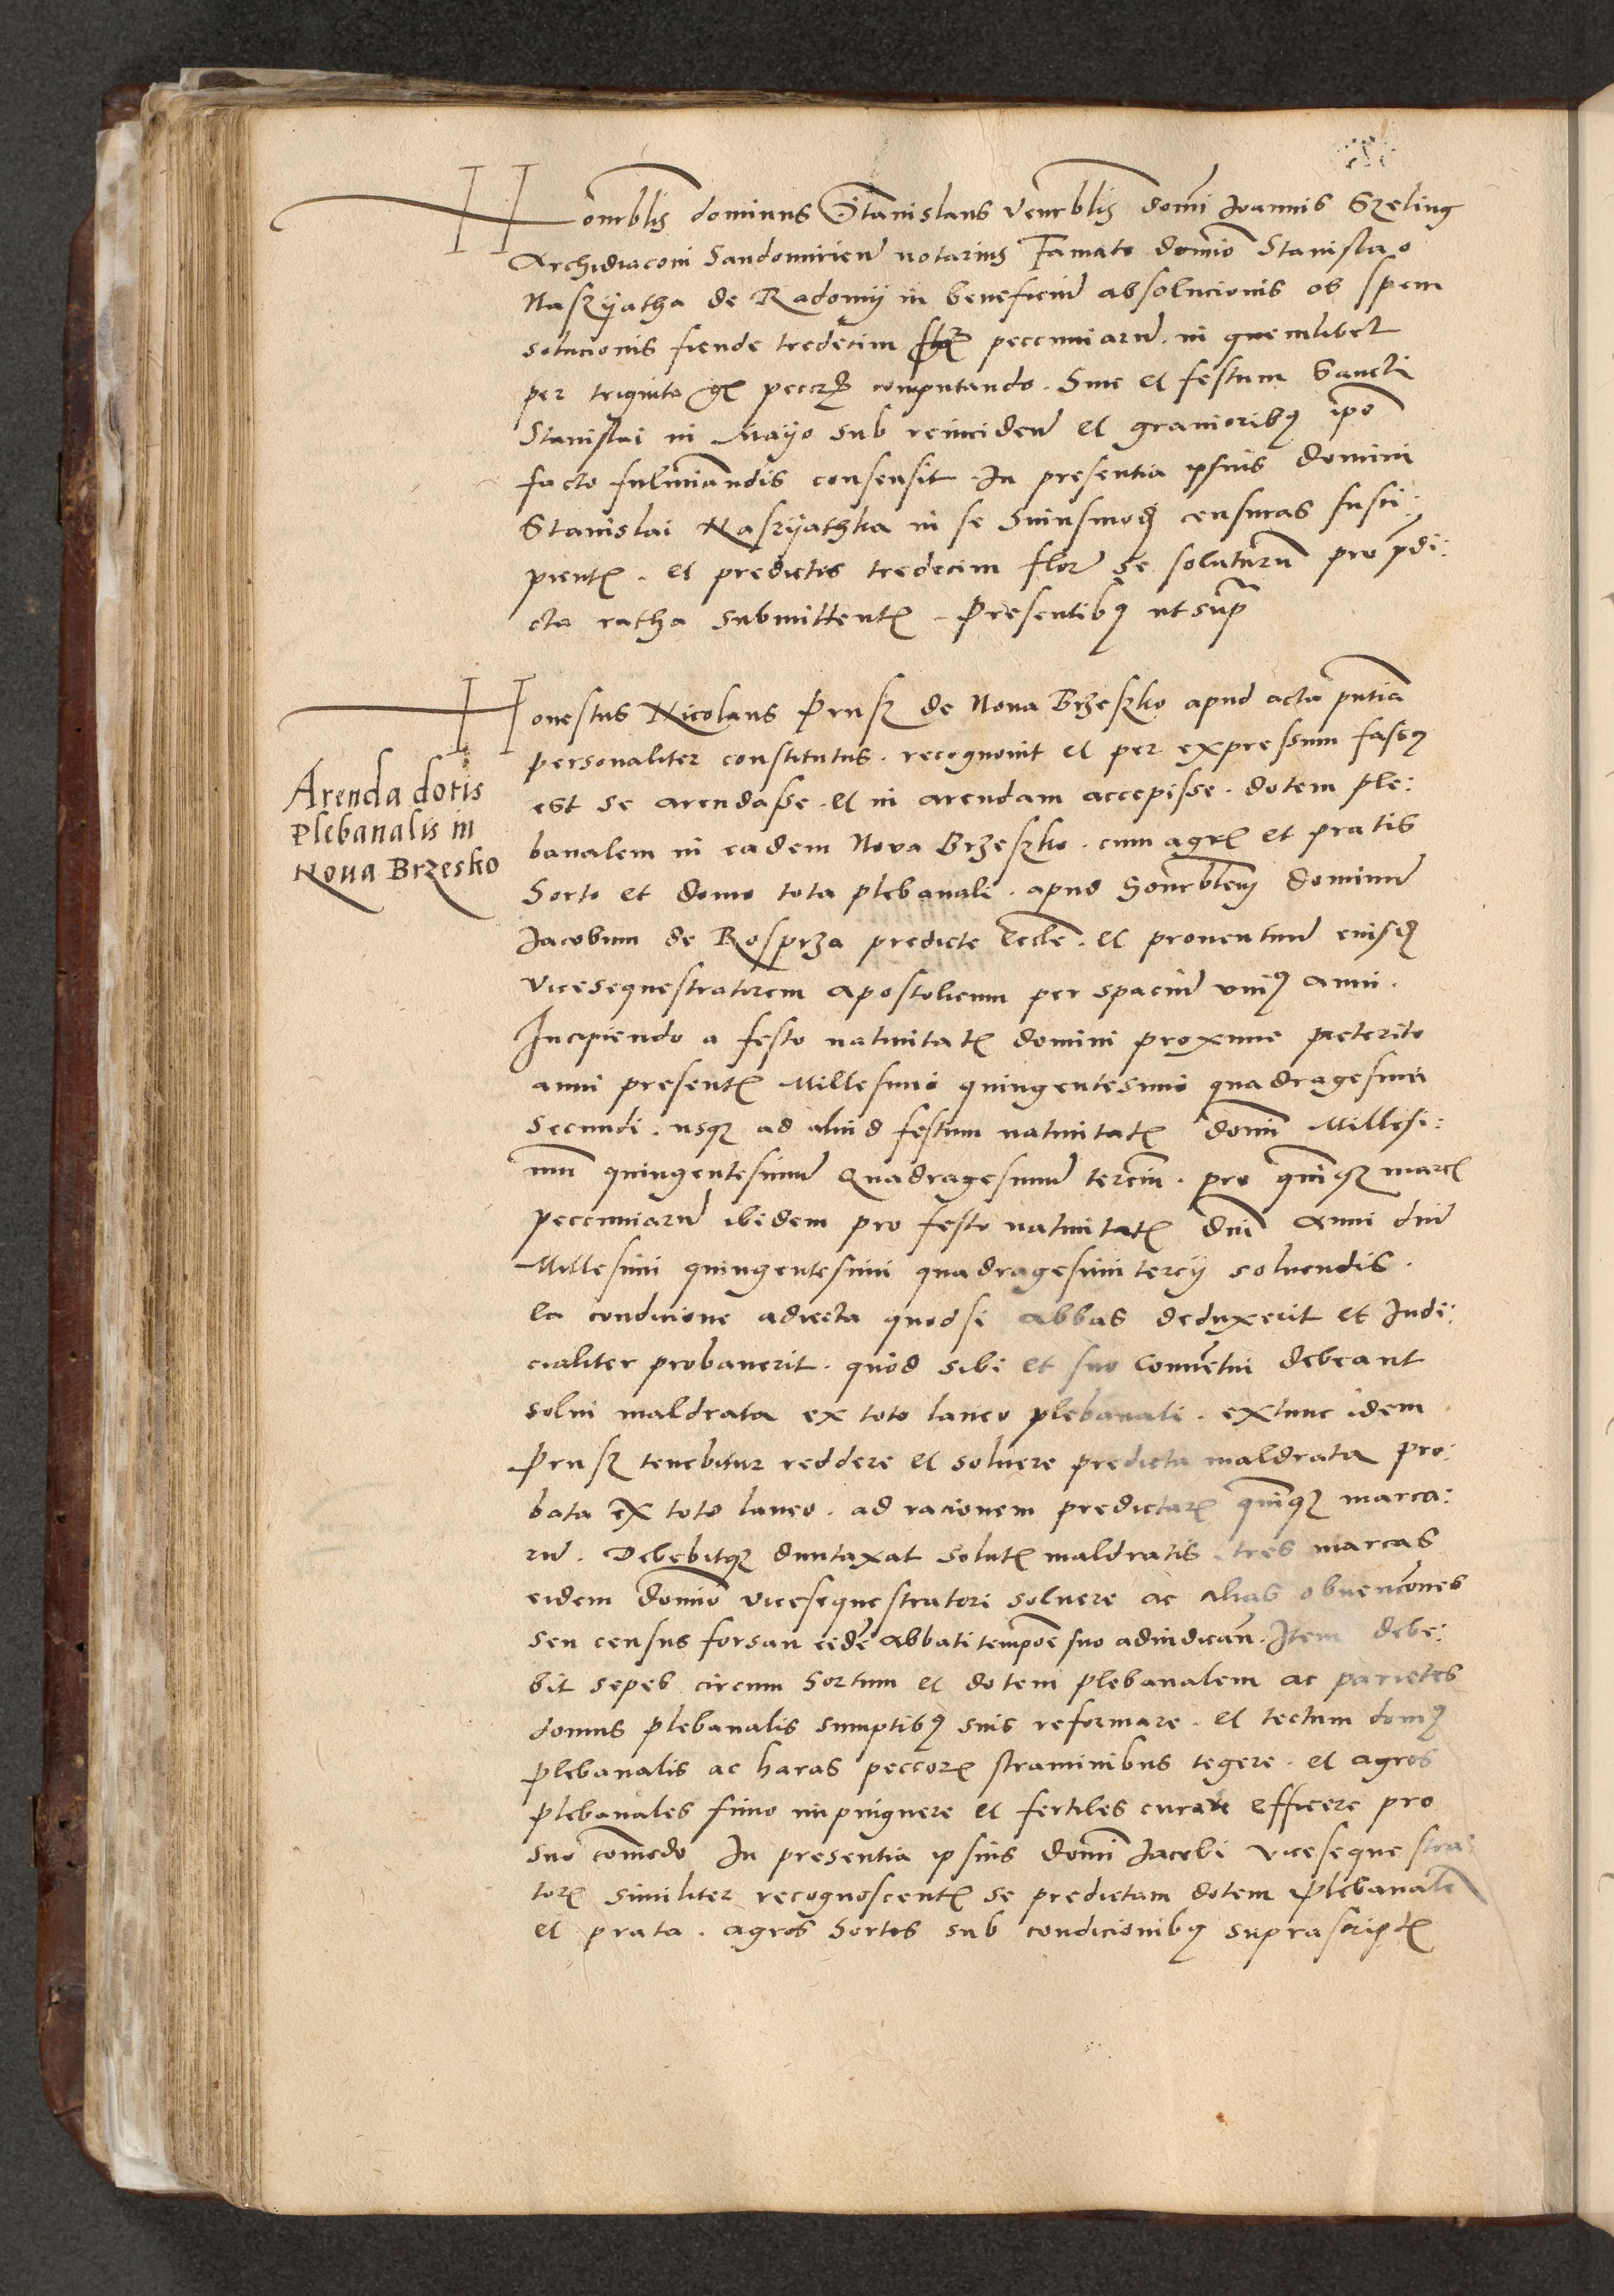 Honrblis dominus Stanislaus venrblis domi Joannis Szeling
Archidiaconi Sandomirien notarius Famato domino Stanislao
Naszyatha de Radomij in beneficium absolucionis ob spem
solucionis fiende tredecim flor peccuniarum in quemlibet
per triginta gr peccr computando. Hinc et festum Sancti
Stanislai in Mayo sub reinciden et grauioribus ipso
facto fulminandis consensit. In presentia ipsius domini
Stanislai Naszyathka in se huiusmodi censuras susci:
pientis. et predictos tredecim flor se soluturum pro pdi:
cta ratha submittentis. Presentibus ut supra
Honestus Nicolaus Prusz de Noua Brzeszko apud acta pntia
personaliter constitutus. recognouit et per expressum fassus
est se arendasse. et in arendam accepisse. dotem ple:
banalem in eadem Nova Brzeszko. cum agris et pratis
horto et domo tota plebanali. apud honrblem dominum
Jacobum de Rosprza predicte Eccle. et prouentuum eiusdem
vicesequestratorem apostolicum per spacium vnius anni.
Incipiendo a festo natiuitatis domini proxime preterito
anni presentis Millesimo quingentesimo quadragesimi
secundi. usque ad aliud festum natiuitatis domini Millesi:
mum quingentesimum Quadragesimum tercium. pro quinque marcis
peccuniarum ibidem pro festo natiuitatis dni Anni dni
Millesimi quingentesimi quadragesimi tercij soluendis.
Ea condicione adiecta quod si Abbas deduxerit et Judi:
cialiter probauerit. quod sibi et suo Conuentui debeant
solui maldrata ex toto laneo plebanali. extunc idem
Prusz tenebitur reddere et soluere predicta maldrata pro:
bata ex toto laneo. ad racionem predictarum quinque marca:
rum. Debebitque duntaxat solutis maldratis. tres marcas
eidem domino vicesequestratori soluere ac alias obuenciones
seu census forsan eidem Abbati tempore suo adiudican. Item debe:
bit sepes circum hortum et dotem plebanalem ac parietes
domus plebanalis sumptibus suis reformare. et tectum domus
plebanalis ac haras peccorum straminibus tegere. et agros
plebanales fimo impinguere et fertiles curare efficere pro
suo comodo In presentia ipsius domini Jacobi vicesequestra:
toris similiter recognoscentis se predictam dotem plebanalem
et prata. agros hortos sub condicionibus suprascriptis
Arenda dotis
Plebanalis in
Noua Brzesko